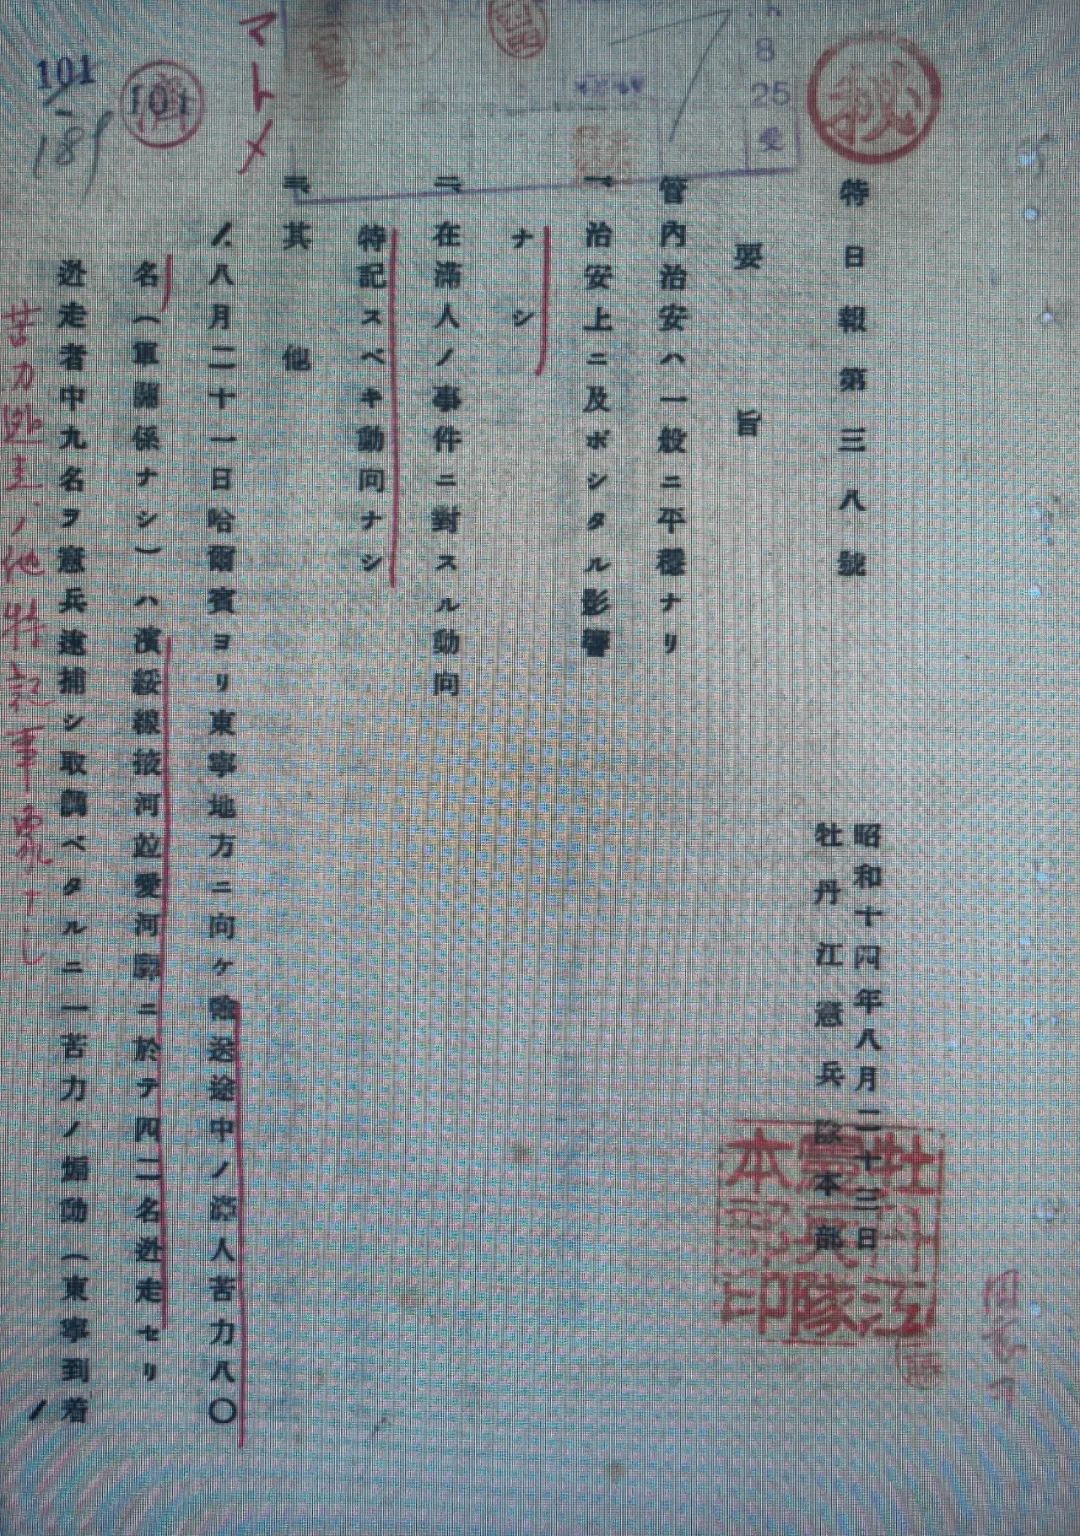 秘
特日報第三八號
昭和十四年八月二十三日
牡丹江憲兵隊本部
牡丹江憲兵隊本部印
要旨
管内治安ハ一般ニ平穩ナリ
一、治安上ニ及ボシタル影響
ナシ
二、在滿人ノ事件ニ對スル動向
特記スベキ動向ナシ
三、其他
1.八月二十一日哈爾賓ヨリ東寧地方ニ向ケ輸送途中ノ滿人苦力八〇
名(軍關係ナシ)ハ濱綏線掖河竝愛河驛ニ於テ四二名逃走セリ
逃走者中九名ヲ憲兵逮捕シ取調ベタルニ一苦力ノ煽動(東寧到着
8
25
受
マトメ
101
101
189
苦力逃走ノ他特記事象ナシ